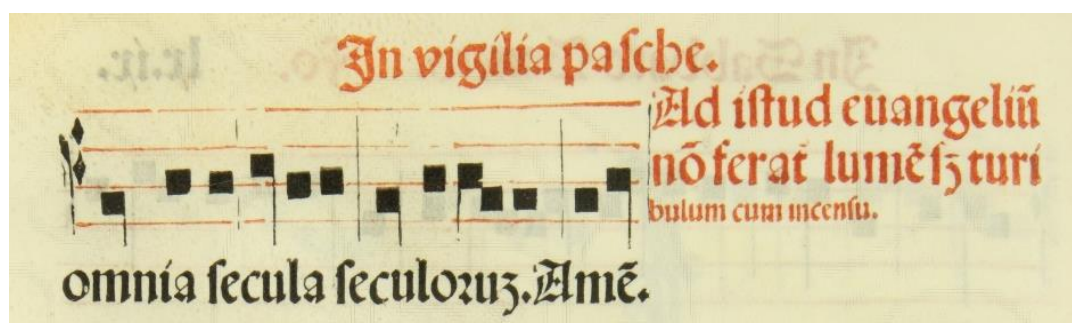 In vigilia pasche.
Ad istud euangeliū
nō ferat̄ lumē sꝫ turi
bulum cum incensu.
omnia secula seculoruꝫ. Amē.